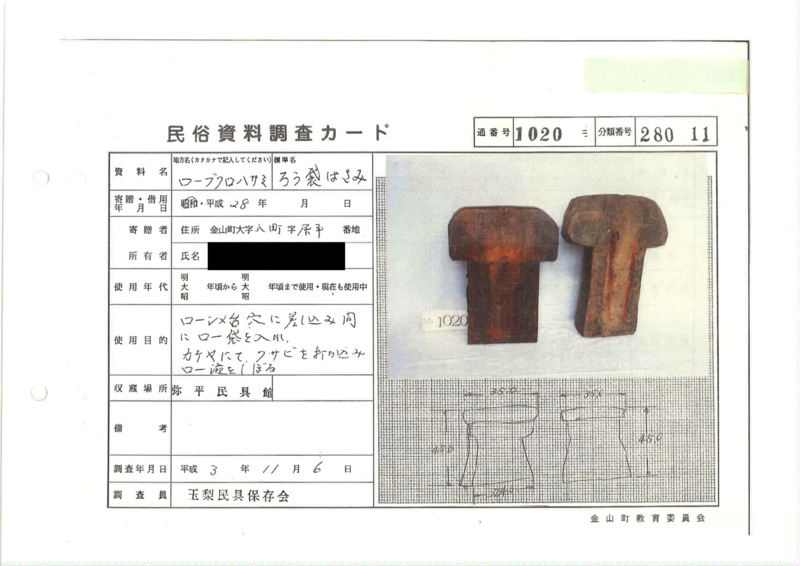 民俗資料調査カード
通番号 1020
分類番号 280 11
資料名
地方名(カタカナで記入してください) ローブクロハサミ
標準名 ろう袋はさみ
寄贈・借用年月日 昭和・平成 28 年 月 日
寄贈者 住所 金山町大字 八町 字 居平 番地
所有者 氏名
使用年代 明 大 昭 年頃から 明 大 昭 年頃まで使用・現在も使用中
使用目的
ローシメ台穴に差し込み間
にロー袋を入れ
カケヤにて、クサビを打り込み
ロー液をしぼる
収蔵場所 弥平民具館
備考
調査年月日 平成 3 年 11 月 6 日
調査員 玉梨民具保存会
1020
35.0
35.0
45.0
45.0
金山町教育委員会